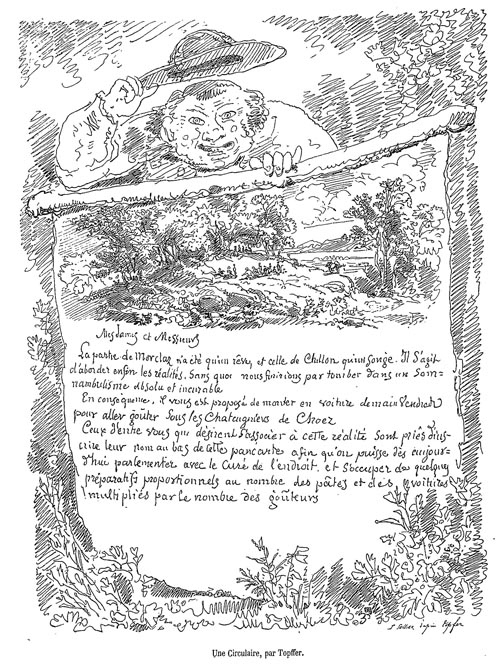 Mesdames et Messieurs
La partie de Morclas n'a été qu'un rêve, et celle de Chillon qu'un songe. Il S'agit
d'aborder enfin les réalités, Sans quoi nous finirions par tomber dans un Som-
nambulisme absolu et incurable
En conséquence, il vous est proposé de monter en voiture demain Vendredi
pour aller goûter Sous les Chataigniers de Choex
Ceux d'entre vous qui désirent S'associer à cette réalité Sont priés d'ins-
crire leur nom au bas de cette pancarte afin qu'on puisse dès aujour-
d'hui parlementer avec le Curé de l'endroit, et S'occuper des quelques
préparatifs proportionnels au nombre des pâtes et des voitures
multipliés par le nombre des goûteurs
Une Circulaire, par Topffer.